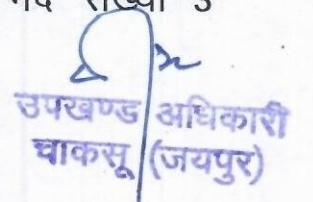 संख्या 3
उपखण्ड अधिकारी
चाकसू (जयपुर)